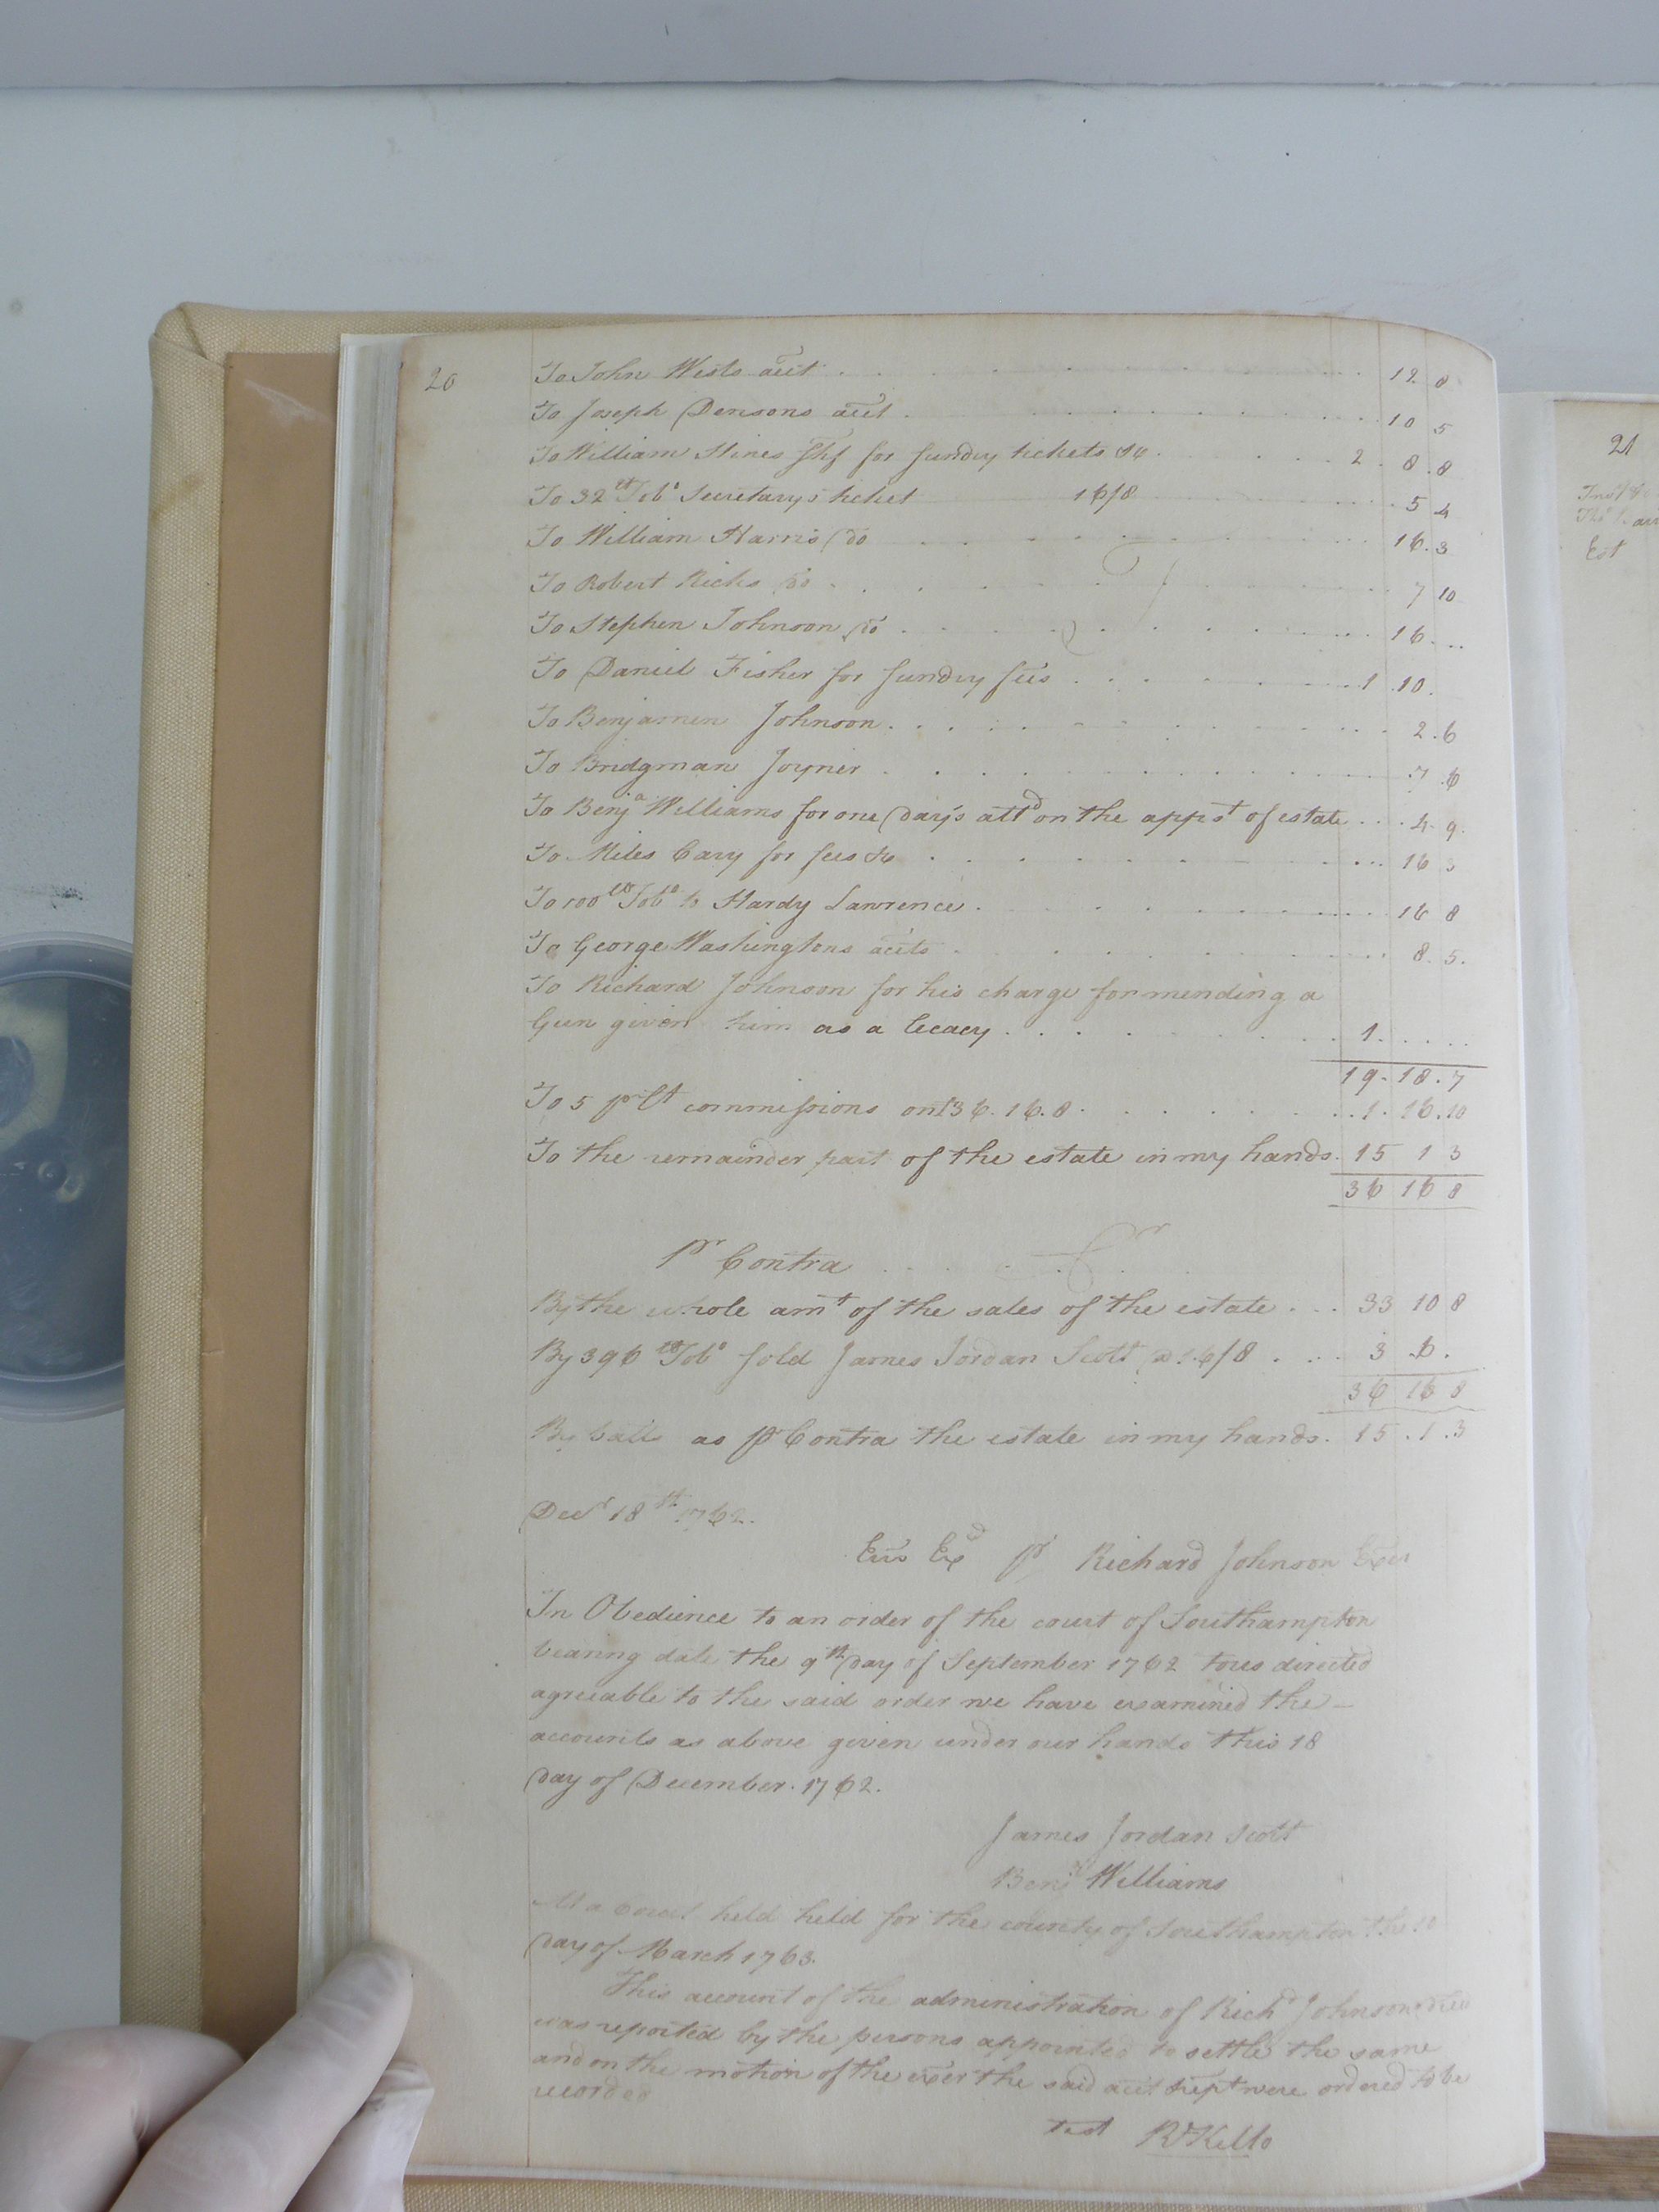 20
To John Wests acct . . . 12. 8
To Joseph Densons acct . . . 10 5
To William Hines Shf for sundry tickets &c . . . 2 . 8 . 8
To 32 lb Tobo Secretarys ticket 16/8 . . . 5 4
To William Harris do . . . 16. 3
To Robert Ricks do . . . 7 10
To Stephen Johnson do . . . 16 . . .
To Daniel Fisher for sundry fees . . . 1 . 10 .
To Benjamin Johnson . . . 2 . 6
To Bridgman Joyner . . . 7 . 6
To Benja Williams for one day's attd on the appst of estate . . . 4. 9.
To Miles Cary for fees &c . . . 16 3
To 100 lb Tobo to Hardy Lawrence . . . 16 8
To George Washingtons accts . . . 8. 5.
To Richard Johnson for his charge for mending a
Gun given him as a Legacy . . . 1 . . . .
19. 18. 7
To 5 pr Ct commissions on £36. 16. 8 . . . 1. 16. 10
To the remainder part of the estate in my hands. 15 1 3
36 16 8
Pr Contra . . . Cr
By the whole amt of the sales of the estate . . . 33 10 8
By 396 lb Tobo sold James Jordan Scott @ 16/8 . . . 3 . 6 .
36 16 8
By balle as pr Contra the estate in my hands. 15 . 1 . 3
Decr 18th 1762.
Errs Exd pr Richard Johnson Exer
In Obedience to an order of the court of Southampton
bearing date the 9th day of September 1762 to us directed
agreeable to the said order we have examined the
accounts as above given under our hands this 18
day of December. 1762.
James Jordan Scott
Benja Williams
At a Court held held for the county of Southampton the 10
day of March 1763.
This account of the administration of Richd Johnson decd
was reported by the persons appointed to settle the same
and on the motion of the exer the said acct & rept were ordered to be
recorded
test R Kello
21
Est